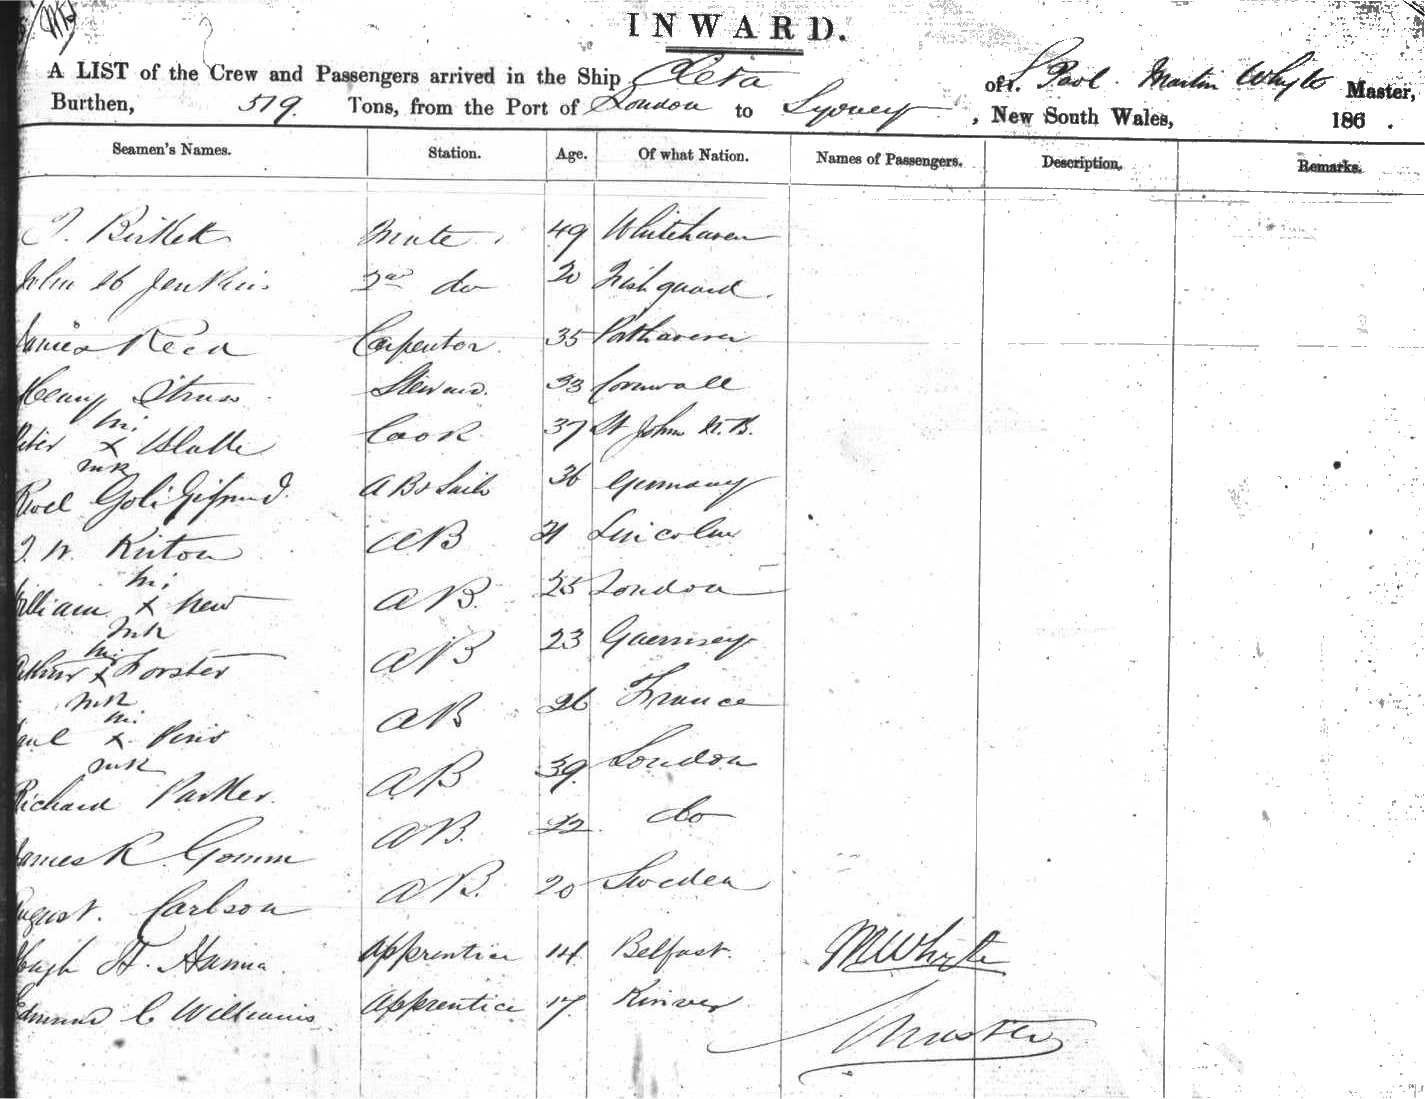 INWARD.
A LIST of the Crew and Passengers arrived in the Ship of Martin Whyte Master,
Burthen, 519. Tons, from the Port of London to Sydney, New South Wales, 186 .
Seamen's Names. Station. Age. Of what Nation. Names of Passengers. Description. Remarks.
Mate 49 Whitehaven
John Jenkins 2nd do 20 Fishguard
James Reed Carpenter 35
Henry Steward 33 Cornwall
his
Peter x Cook 37 St John N.B.
mk
AB & Sails 36 Germany
Kirton AB 21 Lincoln
his
William x New AB. 25 London
mk
his
Arthur x Forster AB 23 Guernsey
mk
his
Paul x AB 26 France
mk
Richard Parker. AB 39 London
James R. Gomm AB. 22 Do
August. Carlson AB. 20 Sweden
Hugh Hanna Apprentice 14 Belfast.
Edmund C Williams Apprentice 17 Kinver
M Whyte
Master